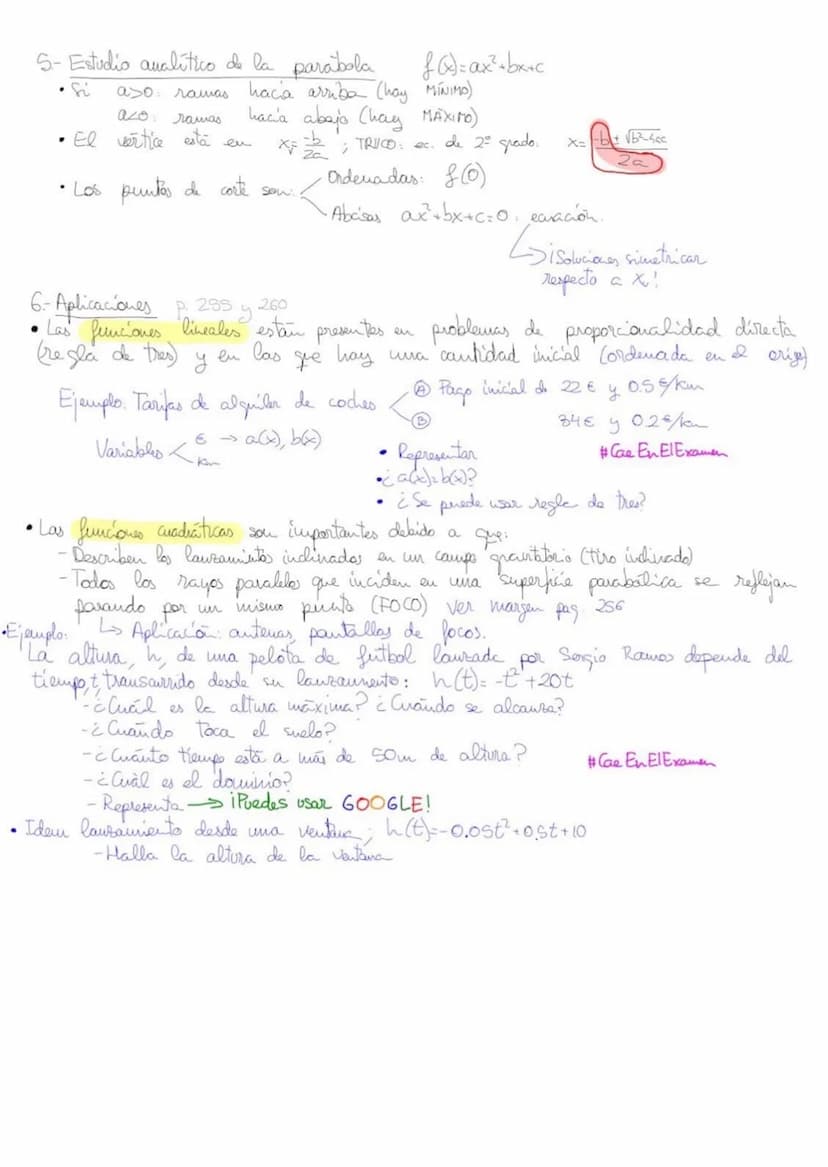 5.- Estudio analítico de la parábola f(x)=ax²+bx+c
• Si a>0: ramas hacia arriba (hay MÍNIMO)
a<0: ramas hacia abajo (hay MÁXIMO)
• El vértice está en xᵥ= -b/2a ; TRUCO: ec. de 2º grado. x= -b±√b²-4ac / 2a
• Los puntos de corte son: Ordenadas: f(0)
Abcisas ax²+bx+c=0, ecuación.
↳ ¡Soluciones simetricar
respecto a X!
6.- Aplicaciones p. 255 y 260
• Las funciones lineales están presentes en problemas de proporcionalidad directa
(regla de tres) y en las que hay una cantidad inicial (ordenada en el orige)
Ejemplo: Tarifas de alquiler de coches Ⓐ Pago inicial de 22€ y 0.5€/km
Ⓑ 34€ y 0.2€/km
Variables € → a(x), b(x)
km
• Representar #CaeEnElExamen
• ¿a(x)=b(x)?
• ¿Se puede usar regla de tres?
• Las funciones cuadráticas son importantes debido a que:
- Describen los lanzamientos inclinados en un campo gravitatorio (tiro inclinado)
- Todos los rayos paralelos que inciden en una superficie parabólica se reflejan
pasando por un mismo punto (FOCO) ver margen pag. 256
↳ Aplicación: antenas, pantallas de focos.
• Ejemplo:
La altura, h, de una pelota de fútbol lanzada por Sergio Ramos depende del
tiempo, t, transcurrido desde su lanzamiento: h(t)= -t²+20t
- ¿Cuál es la altura máxima? ¿Cuándo se alcanza?
- ¿Cuándo toca el suelo?
- ¿Cuánto tiempo está a más de 50m de altura? #CaeEnElExamen
- ¿Cuál es el dominio?
- Representa → ¡Puedes usar GOOGLE!
• Idem lanzamiento desde una ventana; h(t)=-0.05t²+0,5t+10
- Halla la altura de la ventana